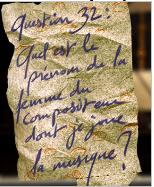 Question 32:
Quel est le
prénom de la
femme du
compositeur
dont je joue
la musique?